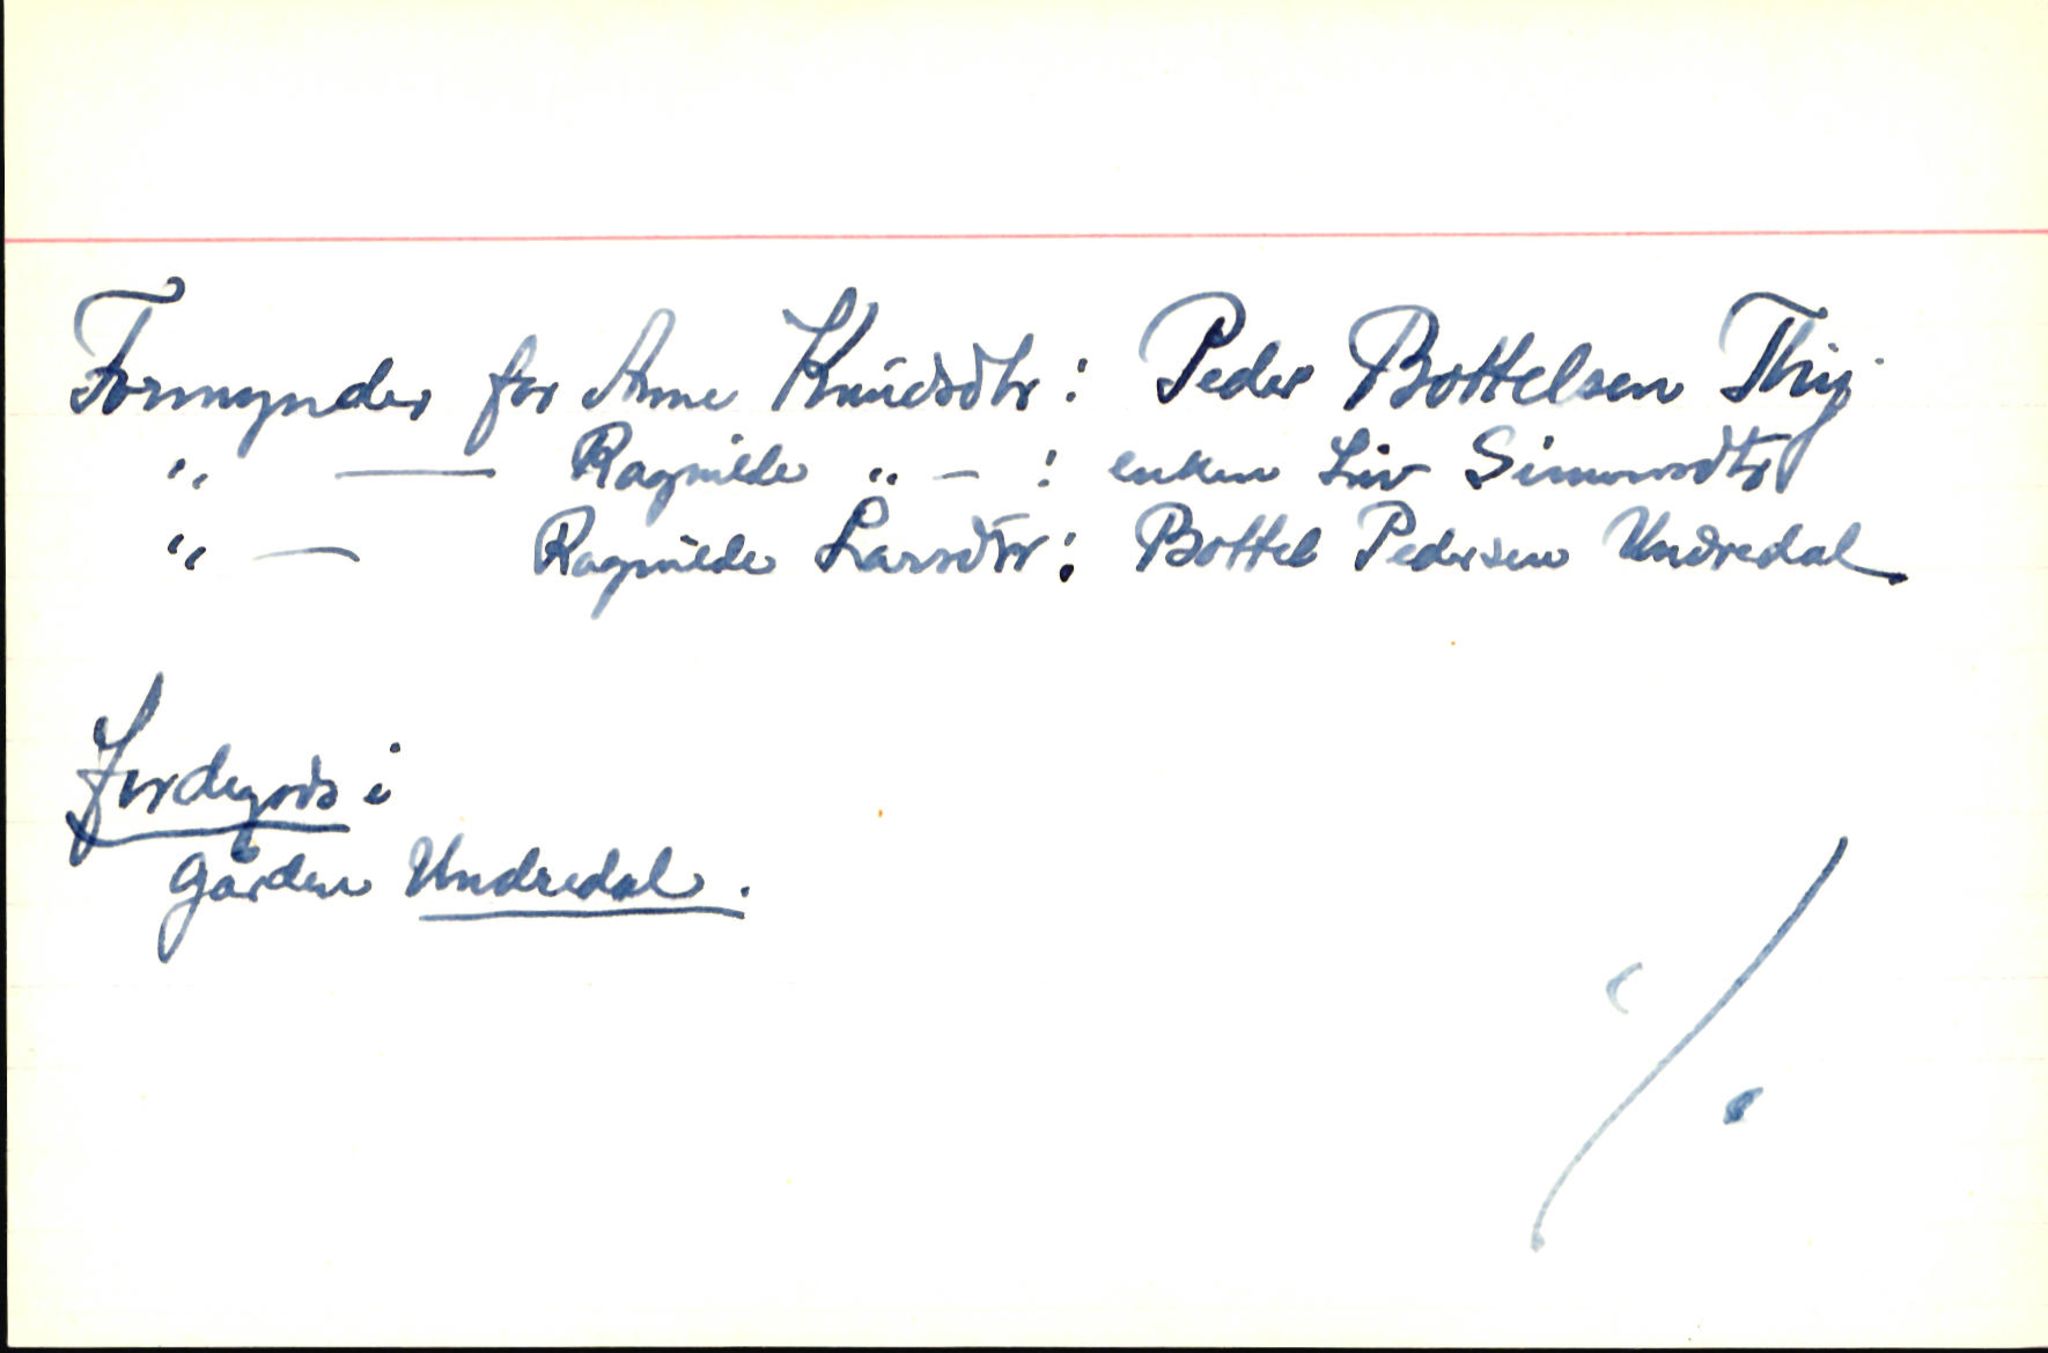 Formynder for Anne Knudsdtr: Peder Bottelsen
" — Ragnilde " — : enken Liv Simonsdtr
" — Ragnilde Larsdtr: Bottel Pedersen Undredal
Jordegods i
gården Undredal.
·/.